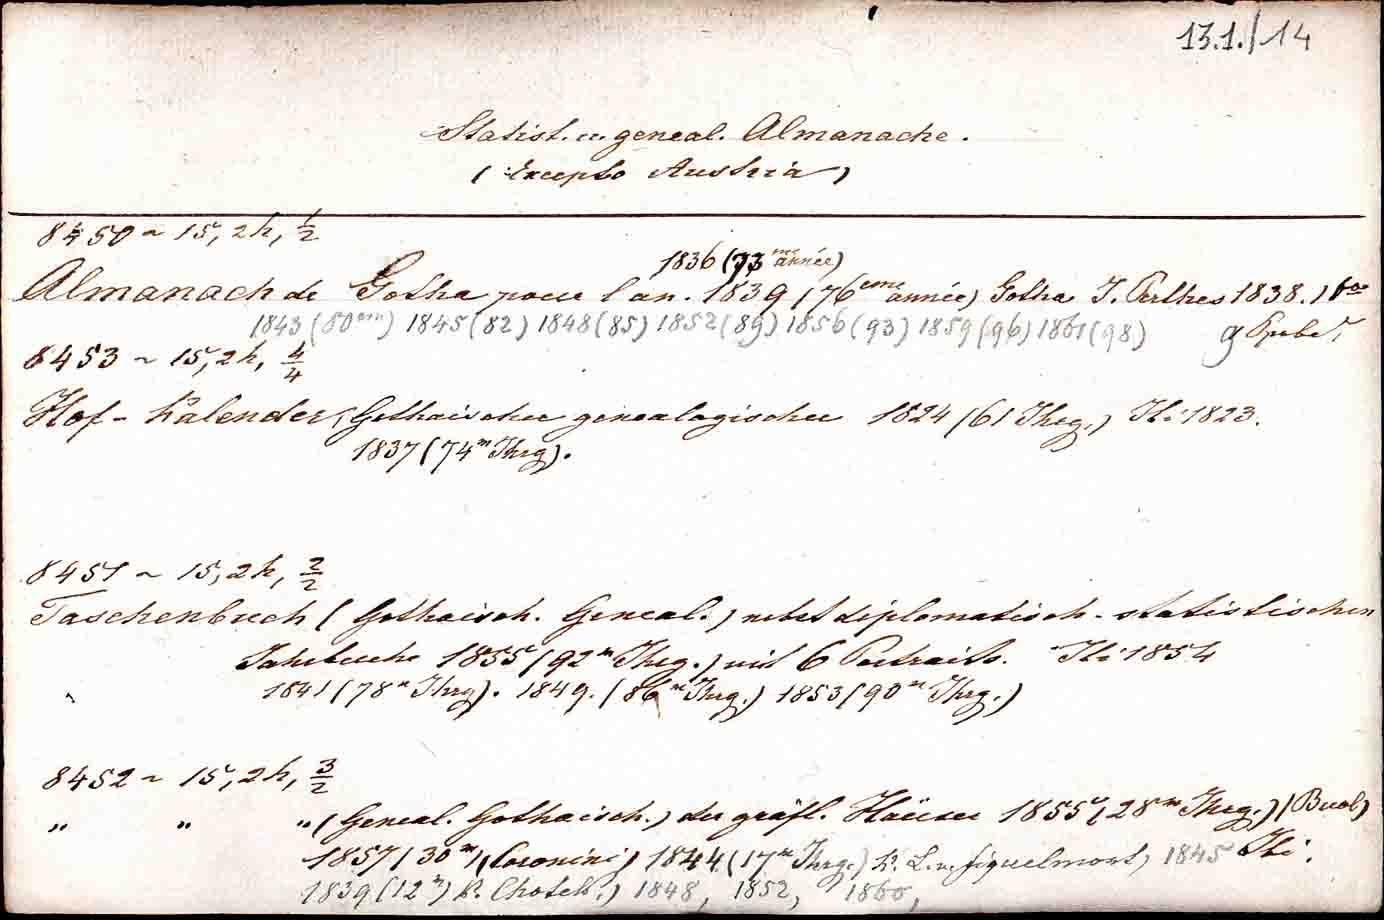 13.1./14
Statist. u. geneal. Almanache.
(Excepto Austria)
8450 ~ 15, 2h, 1/2
1836 (73me année)
Almanach de Gotha pour l'an. 1839 (76eme année) Gotha J. Perthes 1838.)
1843 (80em) 1845 (82) 1848 (85) 1852 (89) 1856 (93) 1859 (96) 1861 (98) 9
8453 ~ 15, 2h, 4/4
Hof-Kalender, Gothaischer genealogischer 1824 (61 Jhrg.) Ibi 1823.
1837 (74n Jhrg).
8451 ~ 15, 2h, 2/2
Taschenbuch (Gothaisch. Geneal.) nebst diplomatisch-statistischen
Jahrbuche 1855 (92n Jhrg.) mit 6 Portraits. Ibi 1854
1841 (78n Jhrg). 1849. (86n Jhrg.) 1853 (90n Jhrg.)
8452 ~ 15, 2h, 3/2
" " " (Geneal. Gothaisch.) der gräfl. Häuser 1855 (28n Jhrg.) (Buol)
1857 (30n) (Coronini) 1844 (17n Jhrg.) L. v. Fiquelmont) 1845 Ibi.
1839 (12n) Chotek.) 1848, 1852, 1860,